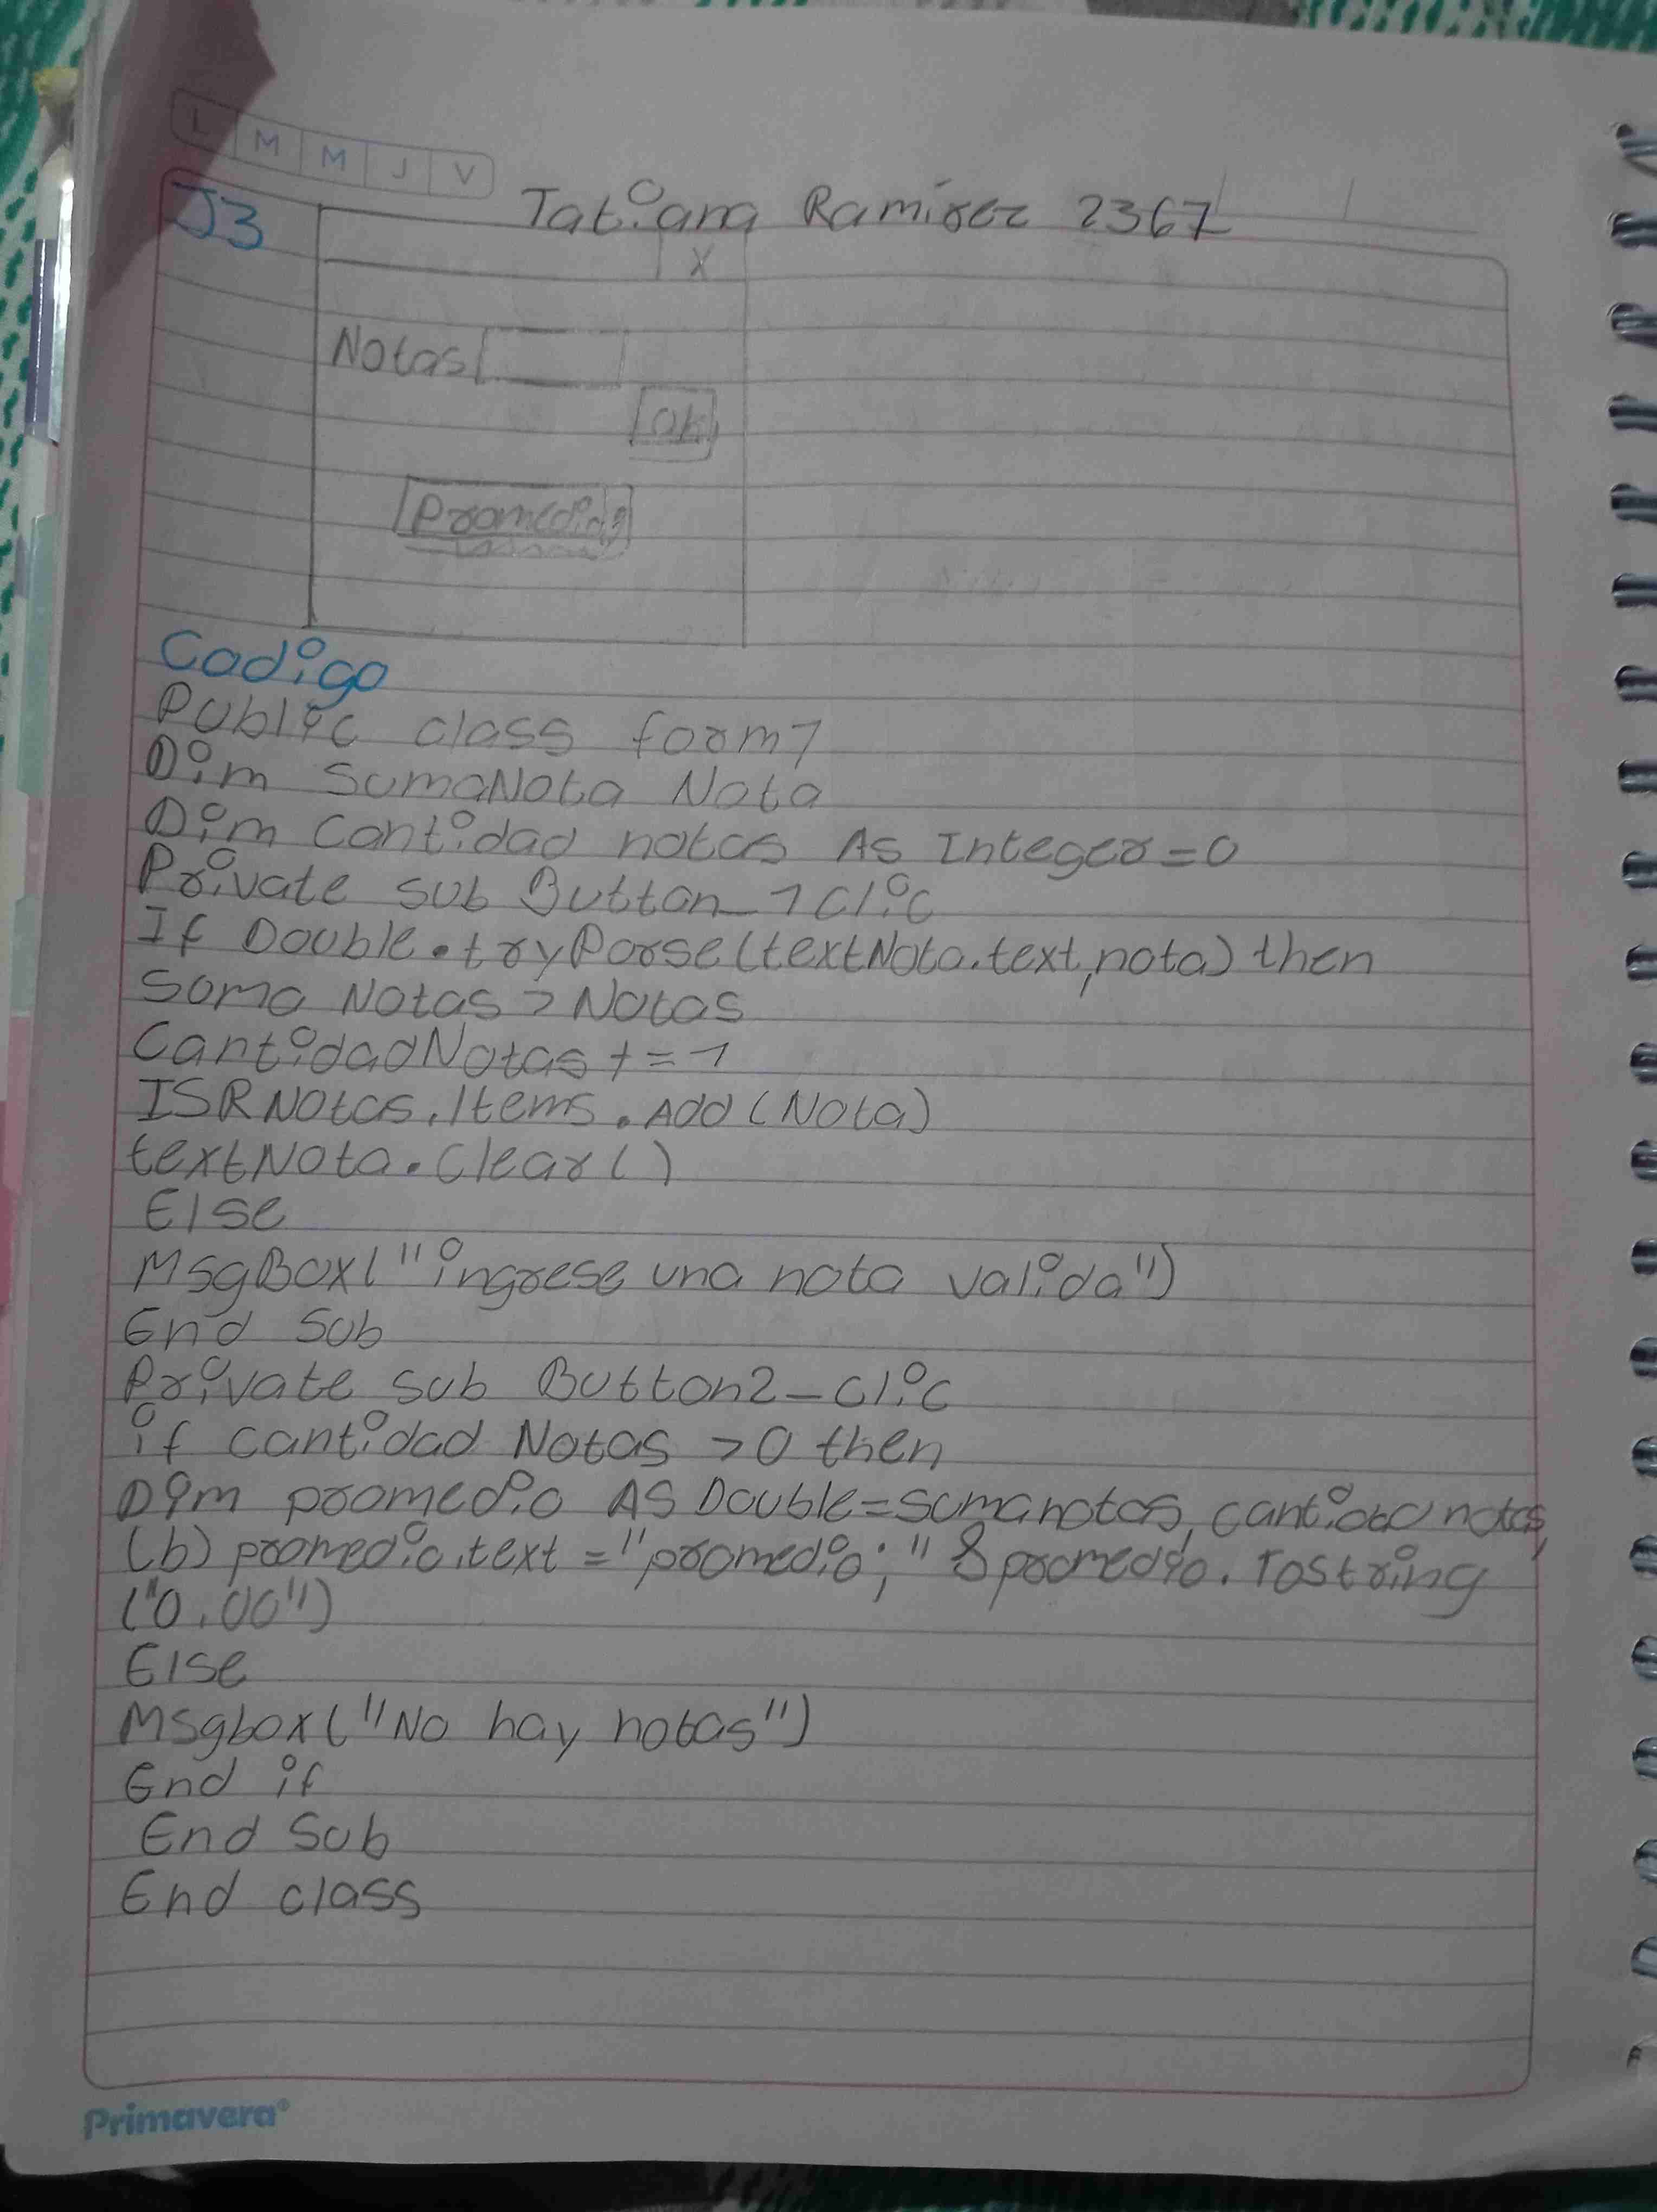 L M M J V
J3 Tatiana Ramirez 2367
X
Notas
OK
Promedio
Codigo
Public class form1
Dim SumaNota Nota
Dim Cantidad notas As Integer=0
Private sub Button_1 Clic
If Double.tryParse(textNota.text,nota) then
Suma Notas > Notas
CantidadNotas += 1
ISRNotas.Items.Add (Nota)
textNota.Clear()
Else
MsgBox("ingrese una nota valida")
End Sub
Private sub Button2_clic
if cantidad Notas >0 then
Dim promedio As Double=sumanotas, cantidad notas,
(b) promedio.text ="promedio;" & promedio.Tostring
("0.00")
Else
Msgbox("No hay notas")
End if
End Sub
End class
Primavera